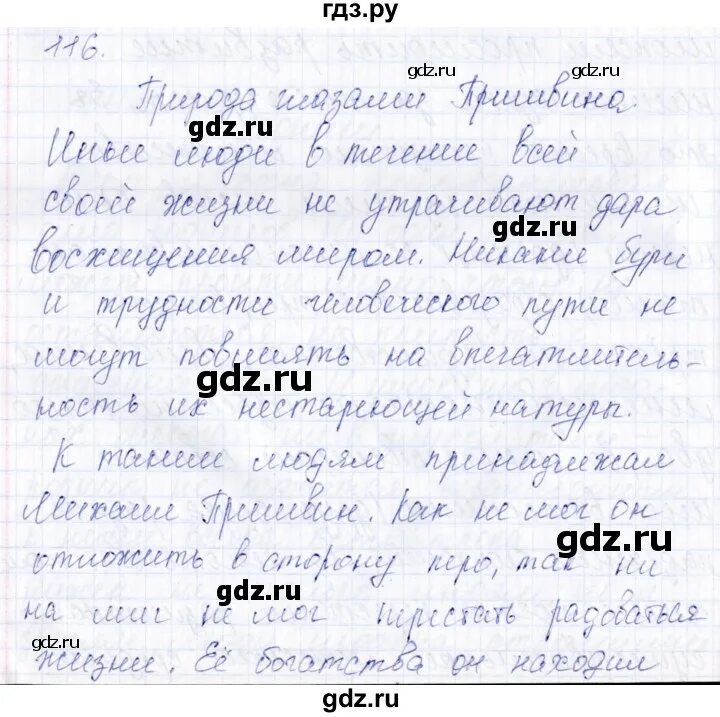 гдз.ру
116.
gdz.ru
Природа глазами Пришвина.
gdz.ru
gdz.ru
Иные люди в течение всей
своей жизни не утрачивают дара
gdz.ru
восхищения миром. Никакие бури
gdz.ru
и трудности человеческого пути не
могут повлиять на впечатлитель-
gdz.ru
ность их нестареющей натуры.
К таким людям принадлежал
Михаил Пришвин. Как не мог он
gdz.ru
отложить в сторону перо, так ни
gdz.ru
на миг не мог перестать радоваться
gdz.ru
gdz.ru
жизни. Её богатства он находил
gdz.ru